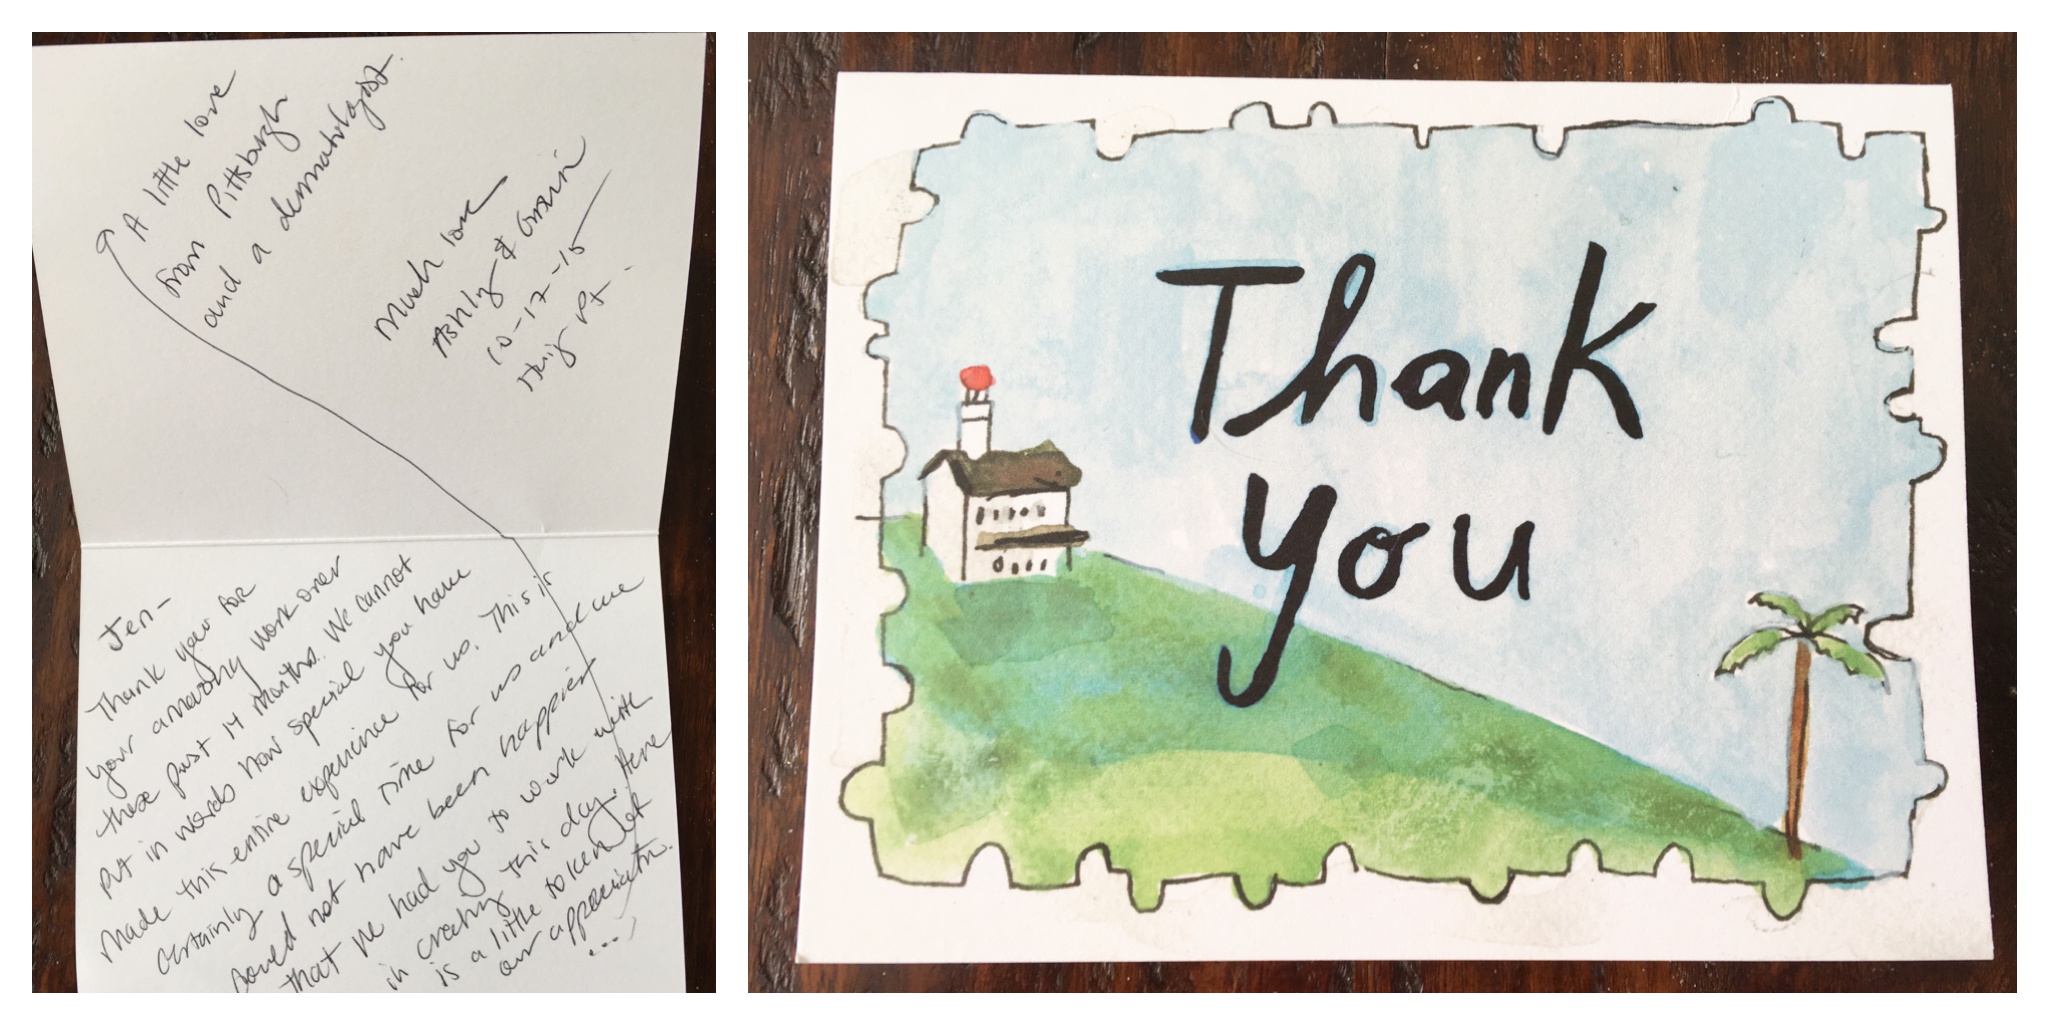 Jen-
Thank you for
your amazing work over
these past 14 months. We cannot
put in words how special you have
made this entire experience for us. This is
certainly a special time for us and we
could not have been happier
that we had you to work with
in creating this day. Here
is a little token of
our appreciation.
...
A little love
from Pittsburgh
and a dermatologist.
Much love
Ashly &
10-17-15
Pt.
Thank
you